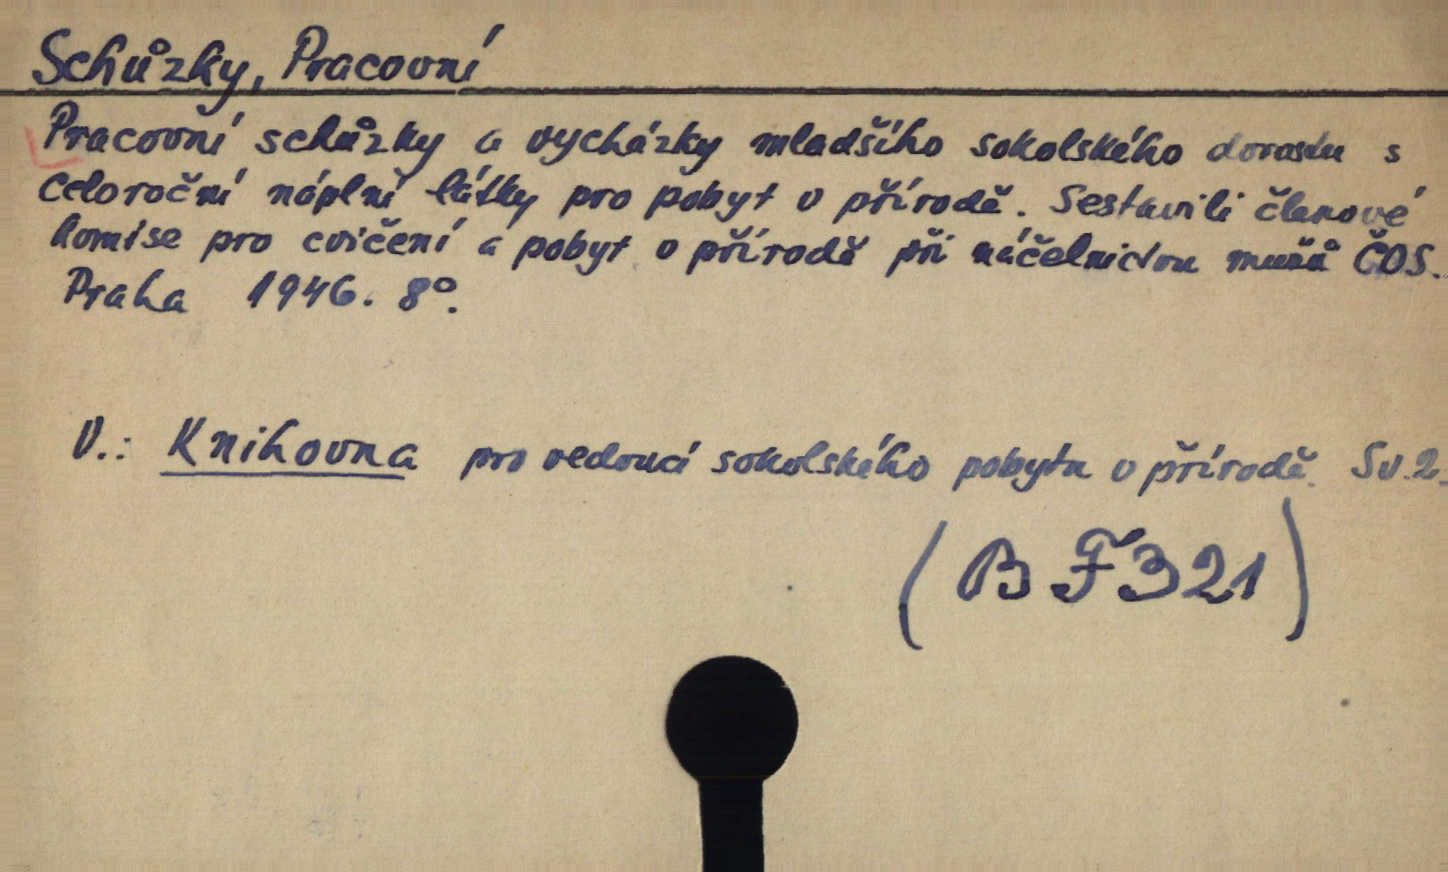 Schůzky, Pracovní
Pracovní schůzky a vycházky mladšího sokolského dorostu s
celoroční náplní látky pro pobyt v přírodě. Sestavili členové
komise pro cvičení a pobyt v přírodě při náčelnictvu mužů ČOS.
Praha 1946. 8°.
V.: Knihovna pro vedoucí sokolského pobytu v přírodě. Sv. 2.
(BF321)